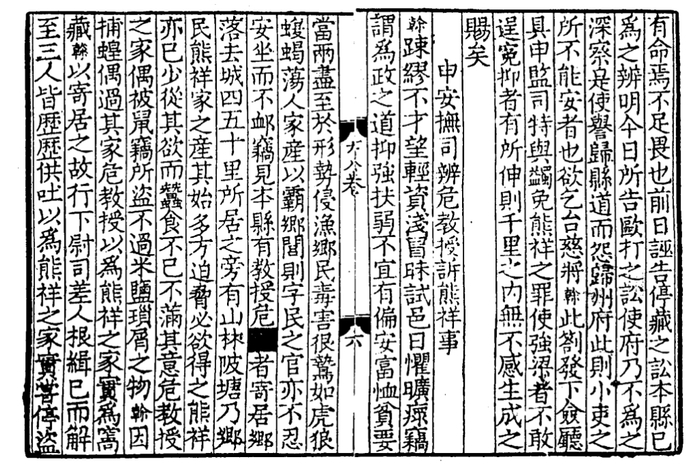 有命焉不足畏也前日誣告停藏之訟本縣已
為之辨明今日所告歐打之訟使府乃不為之
深察是使譽歸縣道而怨歸州府此則小吏之
所不能安者也欲乞台慈將榦此劄發下僉廳
具申監司特與蠲免熊祥之罪使強梁者不敢
逞寃抑者有所伸則千里之内無不感生成之
賜矣
申安撫司辨危教授訴熊祥事
榦踈繆不才望輕資淺冒昧試邑日懼曠瘝竊
謂為政之道抑強扶弱不宜有偏安富恤貧要
八卷
六
當兩盡至於形勢侵漁鄉民毒害很驁如虎狼
蝮蝎蕩人家産以霸鄉閭則字民之官亦不忍
安坐而不䘏竊見本縣有教授危者寄居鄉
落去城四五十里所居之旁有山林陂塘乃鄉
民熊祥家之産其始多方迫脅必欲得之熊祥
亦已少從其欲而蠶食不已不滿其意危教授
之家偶被鼠竊所盗不過米鹽瑣屑之物榦因
捕蝗偶過其家危教授以為熊祥之家實為窩
藏榦以寄居之故行下尉司差人根緝已而解
至三人皆歷歷供吐以為熊祥之家實嘗停盗